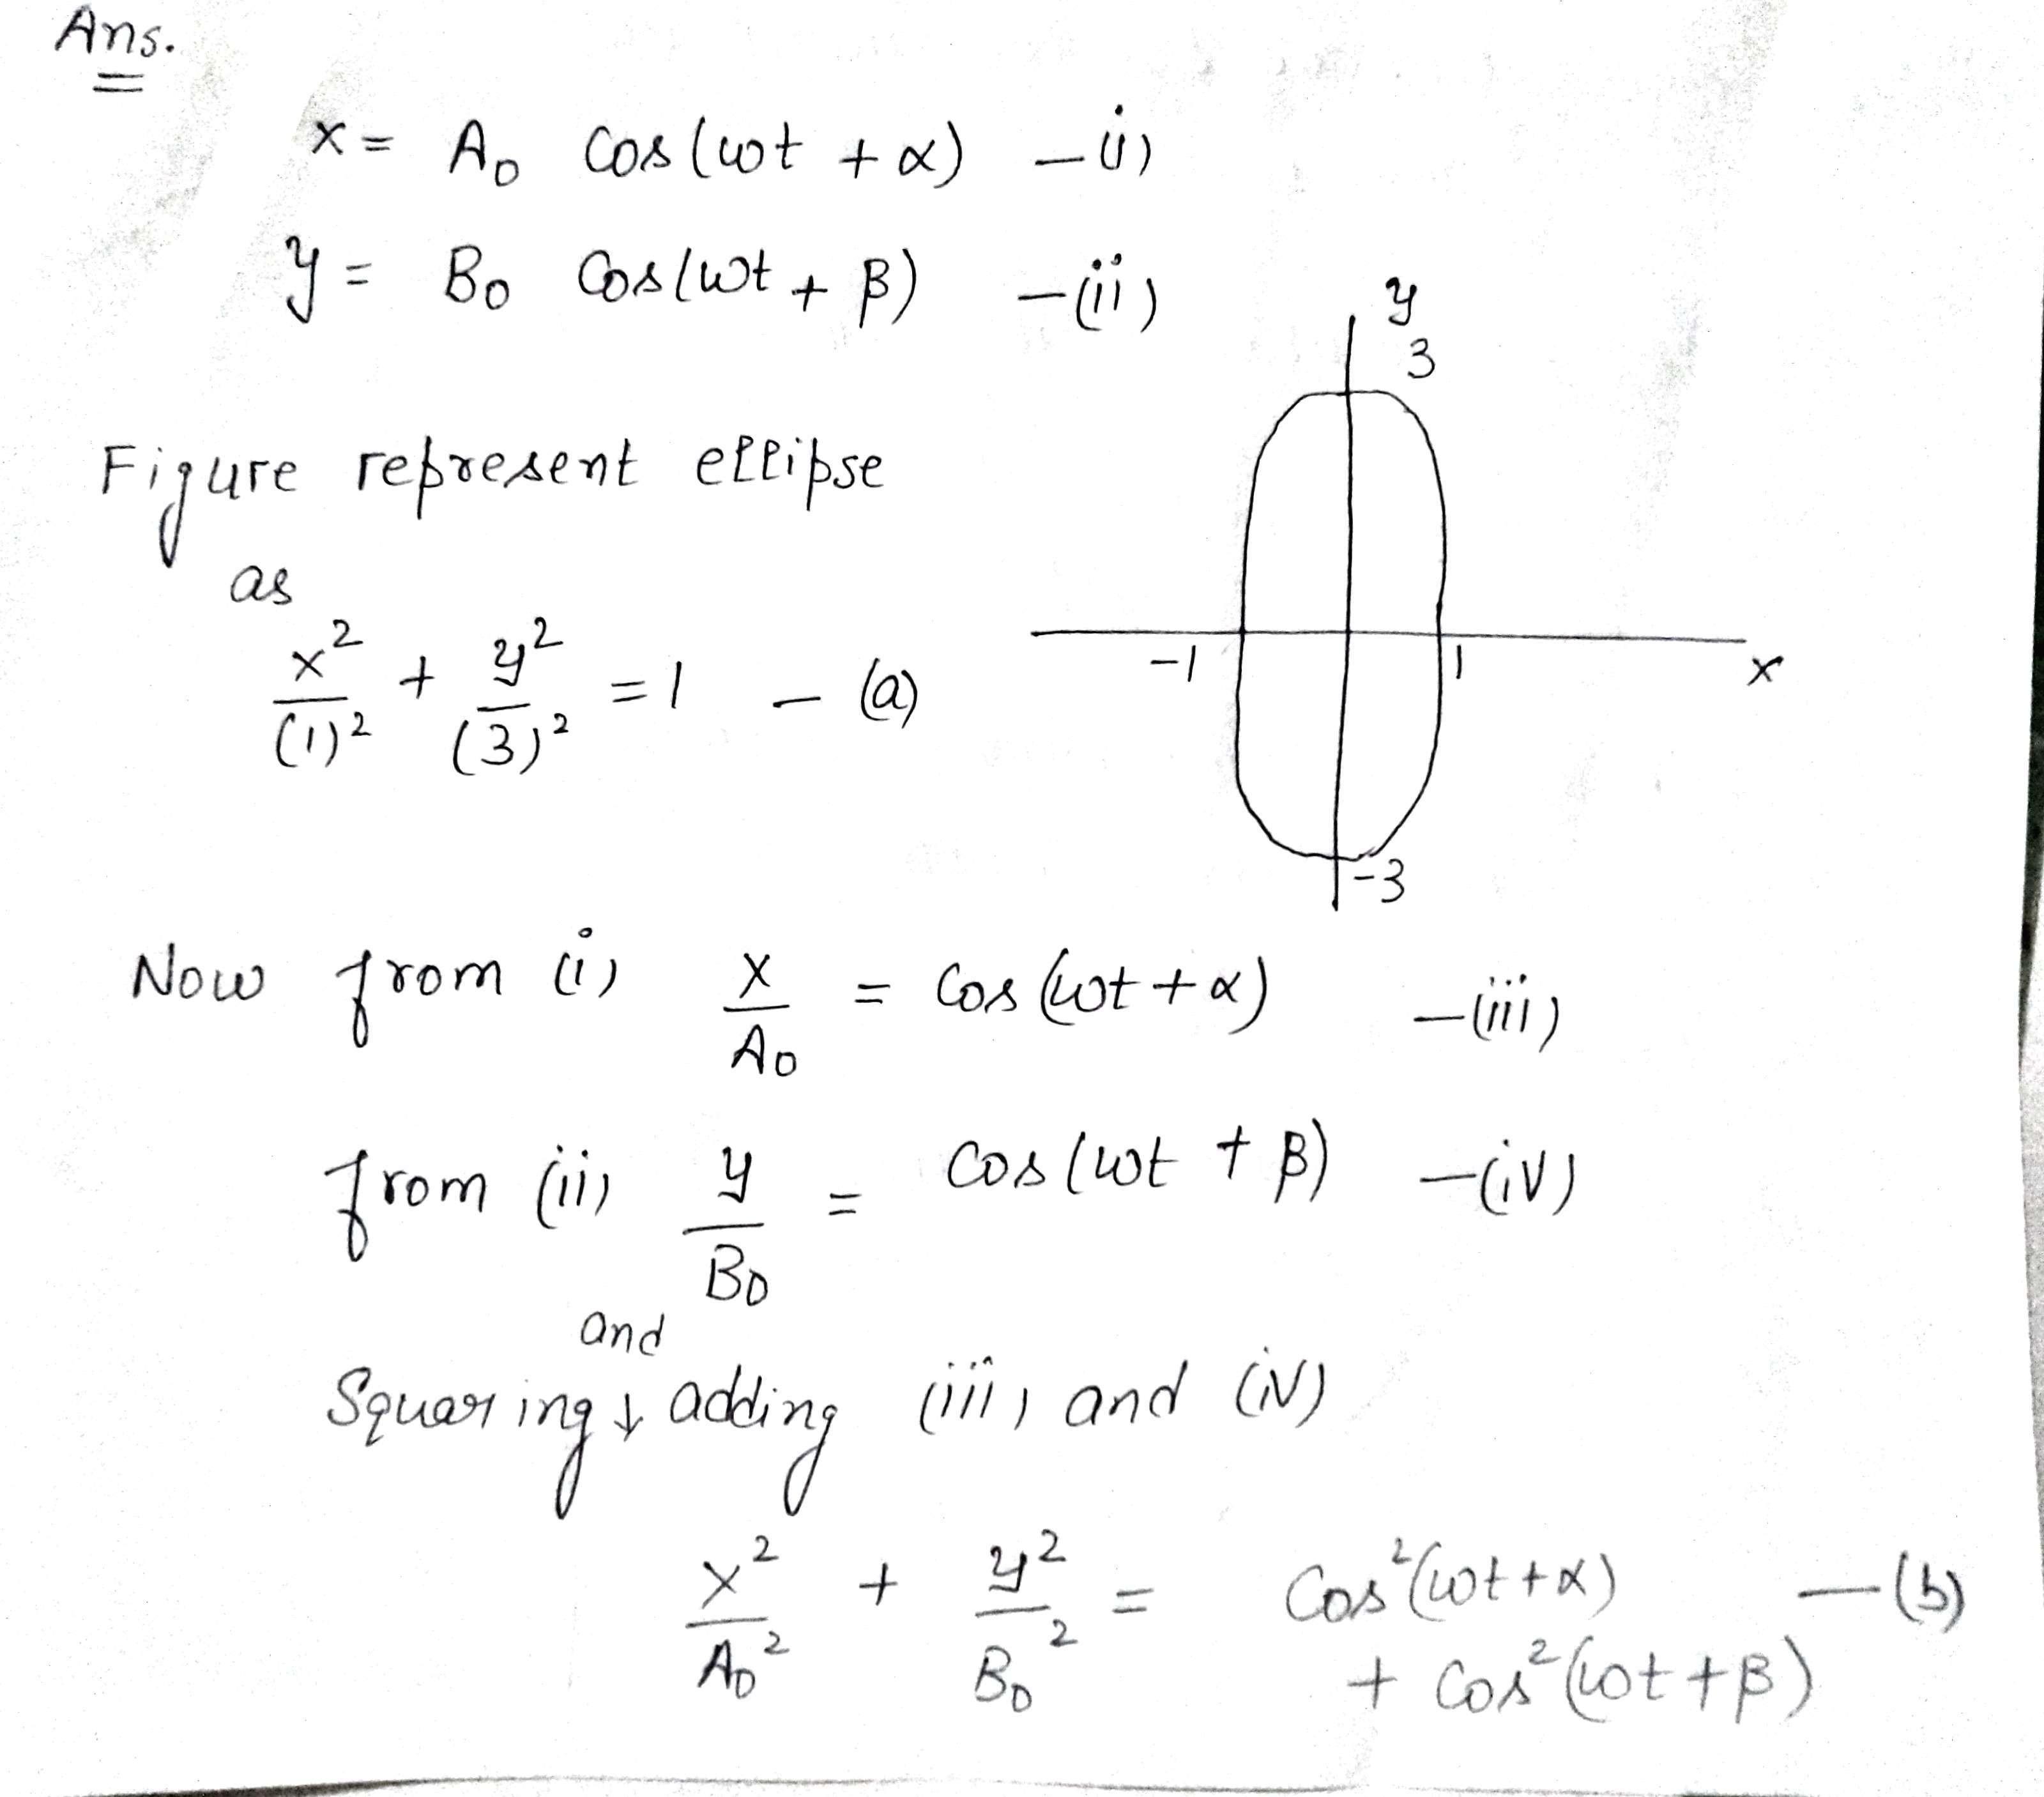 Ans.
x = A₀ Cos(ωt + α) – (i)
y = B₀ Cos(ωt + β) – (ii)
y
3
Figure represent ellipse
as
x²/(1)² + y²/(3)² = 1 – (a)
-1
1
x
-3
Now from (i) x/A₀ = Cos(ωt + α) – (iii)
from (ii) y/B₀ = Cos(ωt + β) – (iv)
and
Squaring ↓ adding (iii) and (iv)
x²/A₀² + y²/B₀² = Cos²(ωt + α) – (b)
+ Cos²(ωt + β)